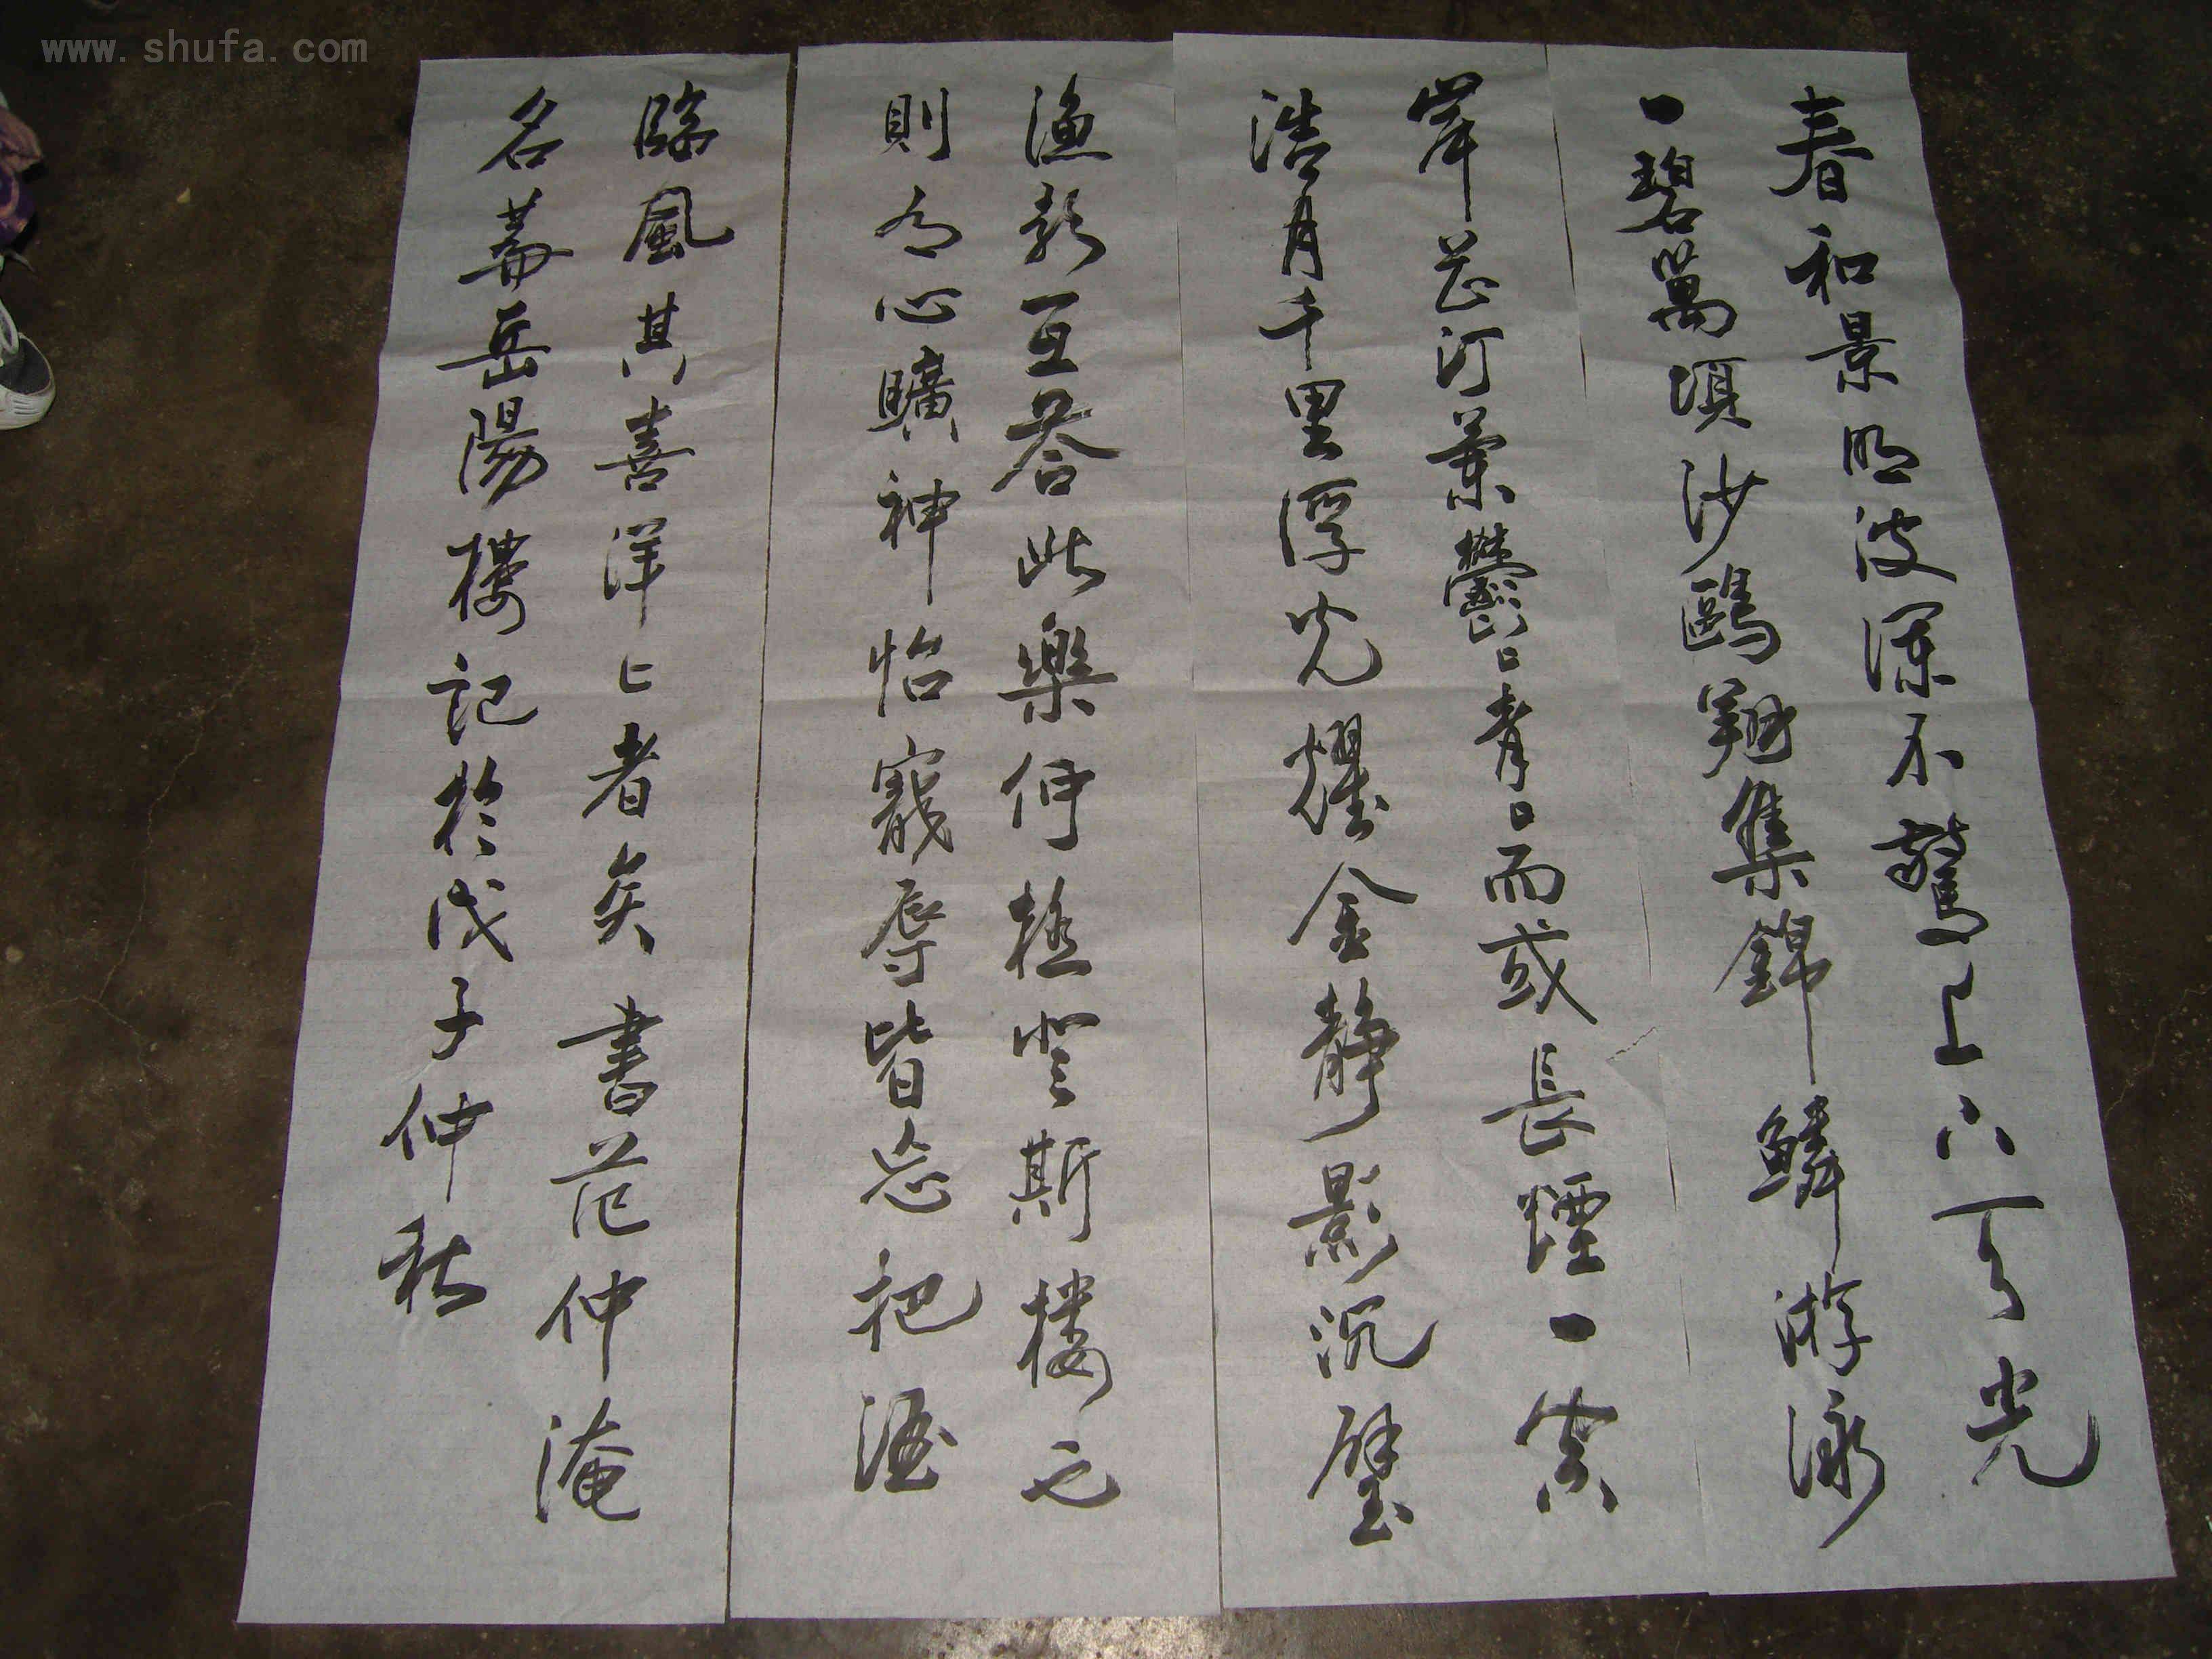 www.shufa.com
春和景明波瀾不驚上下天光
一碧萬頃沙鷗翔集錦鱗游泳
岸芷汀蘭鬱々青々而或長煙一空
浩月千里浮光耀金靜影沉璧
漁歌互答此樂何極登斯樓也
則有心曠神怡寵辱皆忘把酒
臨風其喜洋々者矣 書范仲淹
名篇岳陽樓記於戊子仲秋